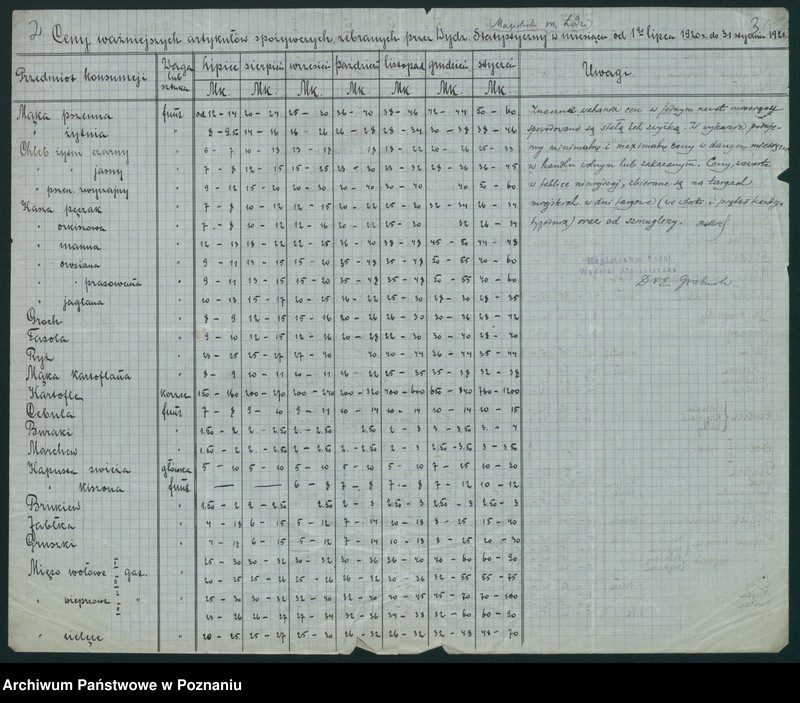 Magistrat m. Łódzi
2 Ceny ważniejszych artykułów spożywczych, zebranych przez Wydz. Statystyczny w miesiącu od 1go lipca 1920 r. do 31 stycznia 1921. 2
Przedmiot konsumcji Waga lub sztuka lipiec sierpień wrzesień paździer. listopad grudzień styczeń Uwagi.
Mk. Mk. Mk. Mk. Mk. Mk. Mk.
Mąka pszenna funt od 12 - 14 20 - 24 25 - 30 36 - 40 38 - 46 42 - 44 50 - 60
" żytnia " 8 - 9.50 14 - 16 16 - 26 26 - 28 28 - 34 30 - 38 38 - 46
Chleb żytni czarny " 6 - 7 10 - 13 13 - 18 18 18 - 22 20 - 26 25 - 33
" " jasny " 7 - 8 12 - 15 15 - 25 23 - 30 23 - 32 28 - 36 36 - 45
" pszen. zwyczajny " 9 - 12 15 - 20 20 - 30 30 - 40 30 - 40 40 50 - 60
Kasza pęczak " 7 - 8 10 - 12 12 - 15 20 - 22 25 - 30 32 - 34 26 - 34
" " 7 - 8 10 - 12 12 - 16 20 - 22 25 - 30 32 26 - 34
" manna " 12 - 13 18 - 22 22 - 25 36 - 40 38 - 48 45 - 50 44 - 48
" owsiana " 9 - 11 13 - 15 15 - 20 35 - 48 35 - 48 50 - 55 40 - 60
" " prasowana " 9 - 11 13 - 15 15 - 20 35 - 48 35 - 48 50 - 55 40 - 60
" jaglana " 10 - 13 15 - 17 20 - 25 16 - 22 25 - 30 28 - 30 28 - 35
Groch " 8 - 9 12 - 15 15 - 16 20 - 26 26 - 30 30 - 36 28 - 42
Fasola " 9 - 10 12 - 15 12 - 16 20 - 28 22 - 30 30 - 40 28 - 40
Ryż " 23 - 25 25 - 27 27 - 40 40 40 - 44 36 - 44 35 - 44
Mąka kartoflana " 8 - 9 10 - 11 20 - 11 16 - 22 25 - 35 35 - 38 32 - 38
Kartofle korzec 150 - 160 200 - 270 200 - 240 200 - 320 400 - 600 650 - 840 760 - 1200
Cebula funt 7 - 8 9 - 10 9 - 11 10 - 14 10 - 14 10 - 14 10 - 15
Buraki " 1.50 - 2 2 - 2.50 2 - 2.50 2.50 2 - 3 3 - 3.50 3 - 4
Marchew " 1.50 - 2 2 - 2.50 2 - 2.50 2 - 2.50 2 - 3 2.50 - 3.50 3 - 3.50
Kapusta świeża główka 5 - 10 5 - 10 5 - 10 5 - 10 5 - 10 7 - 25 10 - 20
" kiszona funt — — 6 - 8 7 - 8 7 - 8 7 - 12 10 - 12
Brukiew " 1.50 - 2 2 - 2.50 2.50 2 - 3 2.50 - 3 2.50 - 3 2.50 - 3
Jabłka " 4 - 18 6 - 15 5 - 12 7 - 14 10 - 18 8 - 25 15 - 40
Gruszki " 4 - 18 6 - 15 5 - 12 7 - 14 10 - 18 8 - 25 20 - 30
Mięso wołowe I gat. " 25 - 30 30 - 32 30 - 32 30 - 36 36 - 40 40 - 60 60 - 90
II " 20 - 25 25 - 26 25 - 26 26 - 32 20 - 36 32 - 55 55 - 75
" wieprzowe I " " 25 - 30 30 - 32 32 - 40 40 - 45 45 - 70 70 - 100
II 23 - 26 26 - 27 27 - 34 32 - 36 34 - 38 32 - 60 60 - 90
" cielęce " 20 - 25 25 - 27 25 - 30 26 - 32 26 - 32 32 - 48 48 - 70
Znaczne wahania cen w jednym miesiącu
spowodowane są stałą ich zwyżką. W wykazie podaje-
my minimalne i maksymalne ceny w danym miesiącu
w handlu wolnym lub zakazanym. Ceny zawarte
w tablicy niniejszej, zbierane są na targach
miejskich w dni targowe (we wtorki i piątki każdego
tygodnia) oraz od
Dr E. Grabowski
Archiwum Państwowe w Poznaniu